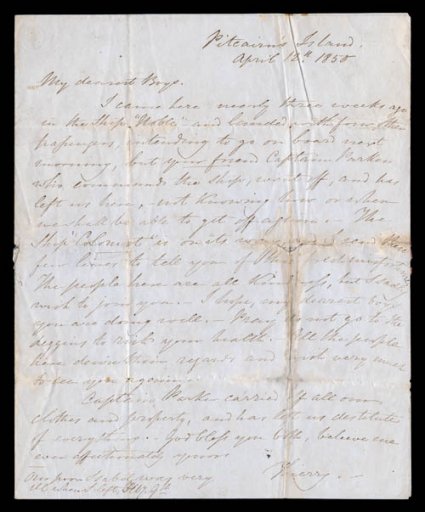 Pitcairn's Island.
April 12th 1850
My dearest Boys.
I came here nearly three weeks ago
in the Ship "Noble" and landed with four other
passengers, intending to go on board next
morning, but your friend Captain Parker
who commands the ship, went off, and has
left us here, not knowing how or when
we shall be able to get off again. The
Ship "Colonist" is on its way and I send these
few lines to tell you of this
The people here are all kindness, but I
wish to join you. I hope, my dearest boys
you are doing well. Pray do not go to the
diggins to risk your health. All the people
here desire their regards and wish very much
to see you again.
Captain Parker carried off all our
clothes and property, and has left us destitute
of everything. God bless you both, believe me
ever affectionately yours
Thierry.
Our poor Isabel was very
ill when I left,